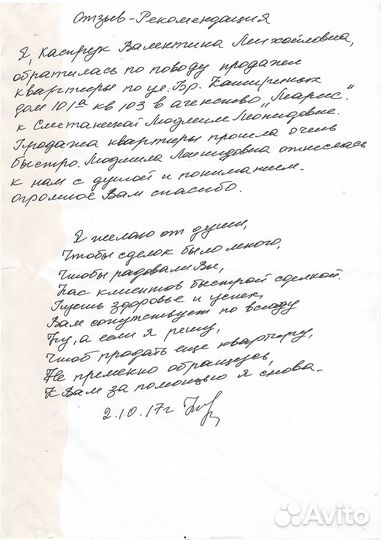 Отзыв-Рекомендация
Я, Касирук Валентина Михайловна,
обратилась по поводу продажи
квартиры по ул. Бр. Кашириных
дом 101а кв 103 в агенство „Марис."
к Сметаниной Людмиле Леонидовне.
Продажа квартиры прошла очень
быстро. Людмила Леонидовна отнеслась
к нам с душой и пониманием.
огромное Вам спасибо.
Я желаю от души,
Чтобы сделок было много,
Чтобы радовали Вы,
Нас клиентов быстрой сделкой.
Пусть здоровье и успех,
Вам сопутствует по всюду
Ну, а если я решу,
Чтоб продать еще квартиру,
Не пременно обращусь,
К Вам за помощью я снова.
2.10.17г
Avito